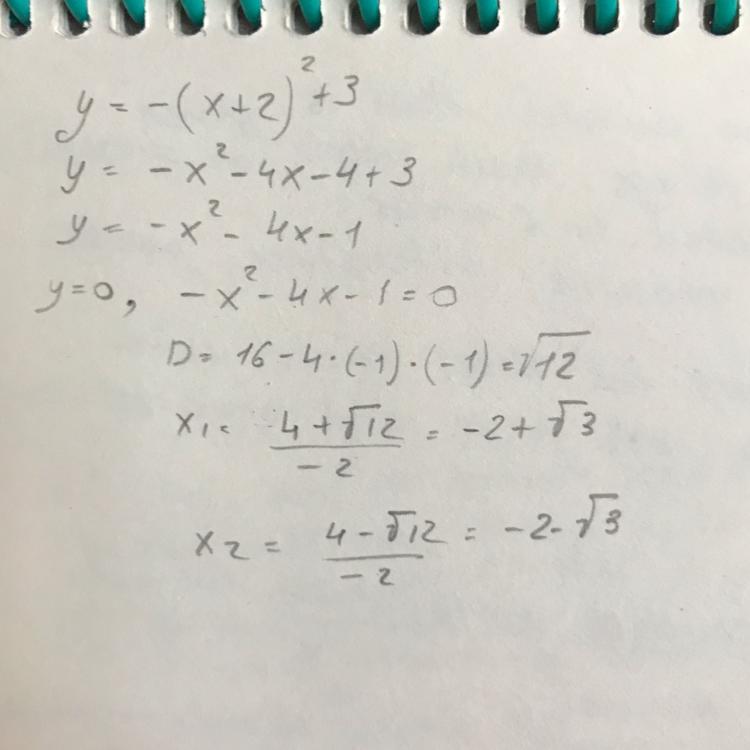 y = -(x+2)²+3
y = -x²-4x-4+3
y = -x²- 4x-1
y=0, -x²-4x-1=0
D= 16-4·(-1)·(-1)=√12
x₁= (4+√12)/(-2) = -2+√3
x₂ = (4-√12)/(-2) = -2-√3